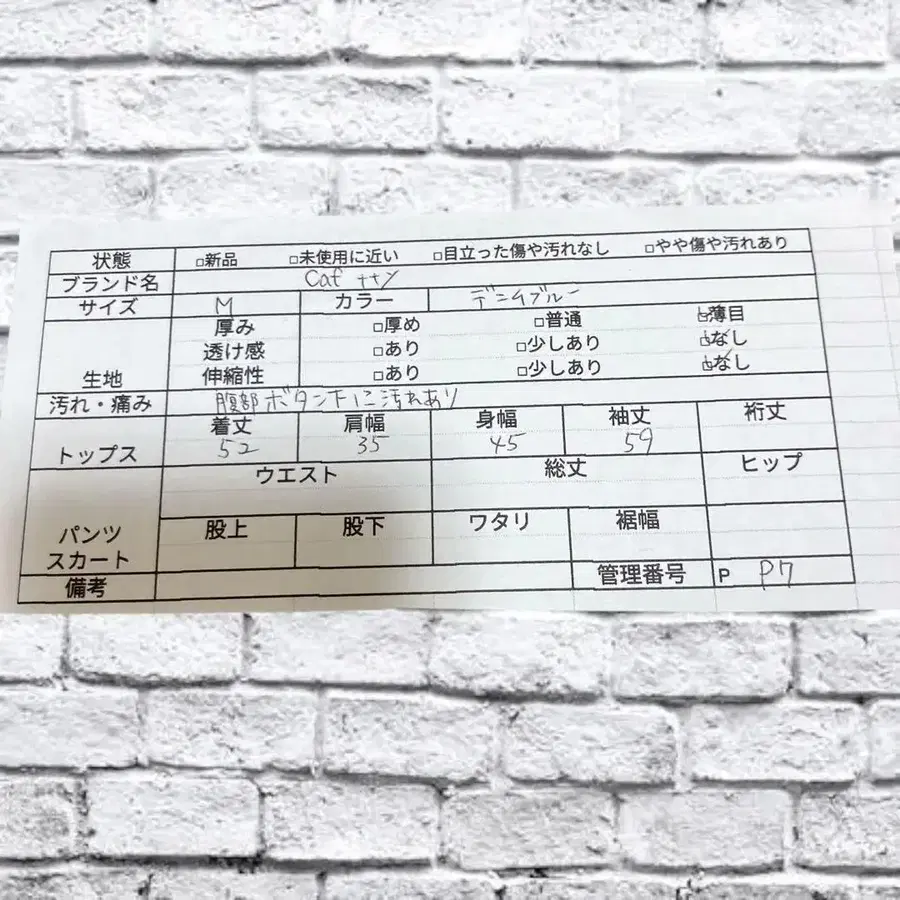 状態 □新品 □未使用に近い □目立った傷や汚れなし □やや傷や汚れあり
ブランド名 Caf tty
サイズ M カラー デニムブルー
厚み □厚め □普通 ☑薄目
透け感 □あり □少しあり ☑なし
生地 伸縮性 □あり □少しあり ☑なし
汚れ・痛み 腹部ボタン下に汚れあり
着丈 肩幅 身幅 袖丈 裄丈
トップス 52 35 45 59
ウエスト 総丈 ヒップ
股上 股下 ワタリ 裾幅
パンツ
スカート
備考 管理番号 P P7